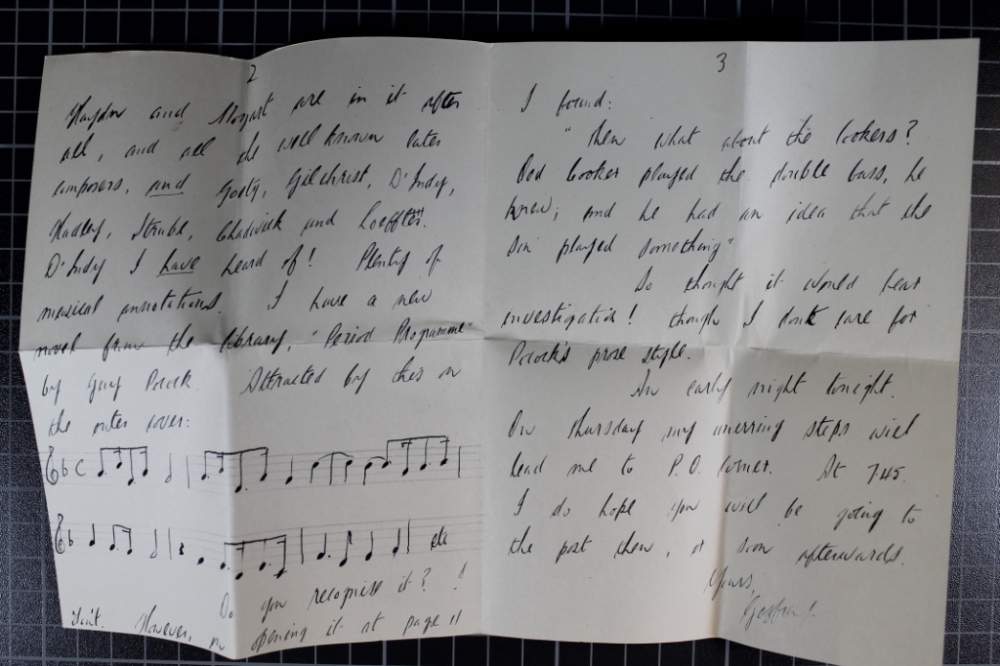 2
Haydn and Mozart are in it after
all, and all the well known later
composers, and Goetz, Gilchrist, D'Indy,
Hadley, Strube, Chadwick and Loeffler.
D'Indy I have heard of! Plenty of
musical annotations. I have a new
novel from the library, "Period Programme"
by Guy Pocock. Attracted by this on
the outer cover:
etc
Do you recognise it? I
didn't. However, on opening it at page 11
3
I found:
"Then what about the Cookers?
Dad Cooker played the double bass, he
knew; and he had an idea that the
son played something"
So thought it would bear
investigation! though I don't care for
Pocock's prose style.
An early night tonight.
On Thursday my unerring steps will
lead me to P.O. Corner. At 7.45.
I do hope you will be going to
the post then, or soon afterwards.
Yours,